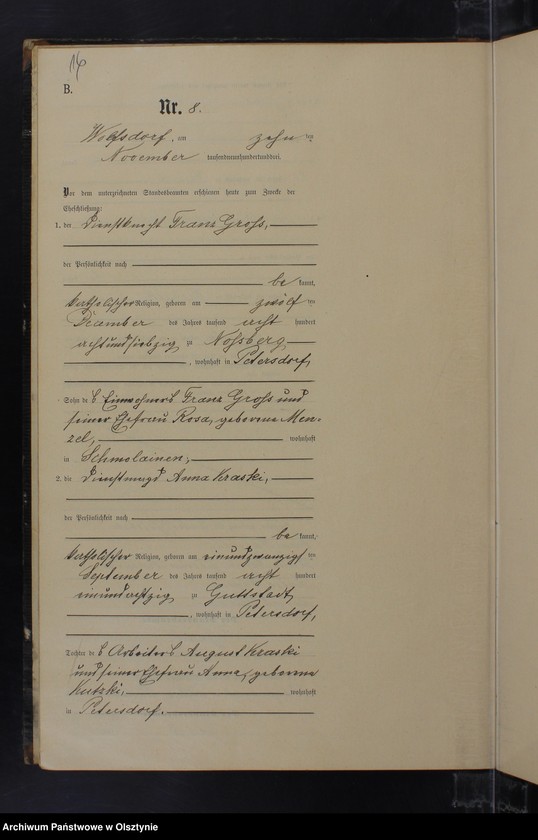 16
B.
Nr. 8.
Wolfsdorf, am zehn ten
November tausendneunhundertunddrei.
Vor dem unterzeichneten Standesbeamten erschienen heute zum Zwecke der
Eheschließung:
1. der Dienstknecht Franz Gross,
der Persönlichkeit nach
be kannt,
katholischer Religion, geboren am zwölf ten
Dezember des Jahres tausend acht hundert
achtundsiebzig zu Nossberg
, wohnhaft in Petersdorf,
Sohn des Einwohners Franz Gross und
seiner Ehefrau Rosa, geborene Men-
zel, wohnhaft
in Schmolainen,
2. die Dienstmagd Anna Kraski,
der Persönlichkeit nach
be kannt,
katholischer Religion, geboren am einundzwanzigs ten
September des Jahres tausend acht hundert
einundachtzig zu Guttstadt
, wohnhaft in Petersdorf,
Tochter des Arbeiters August Kraski
und seiner Ehefrau Anna, geborene
Kutzki, wohnhaft
in Petersdorf.
Archiwum Państwowe w Olsztynie